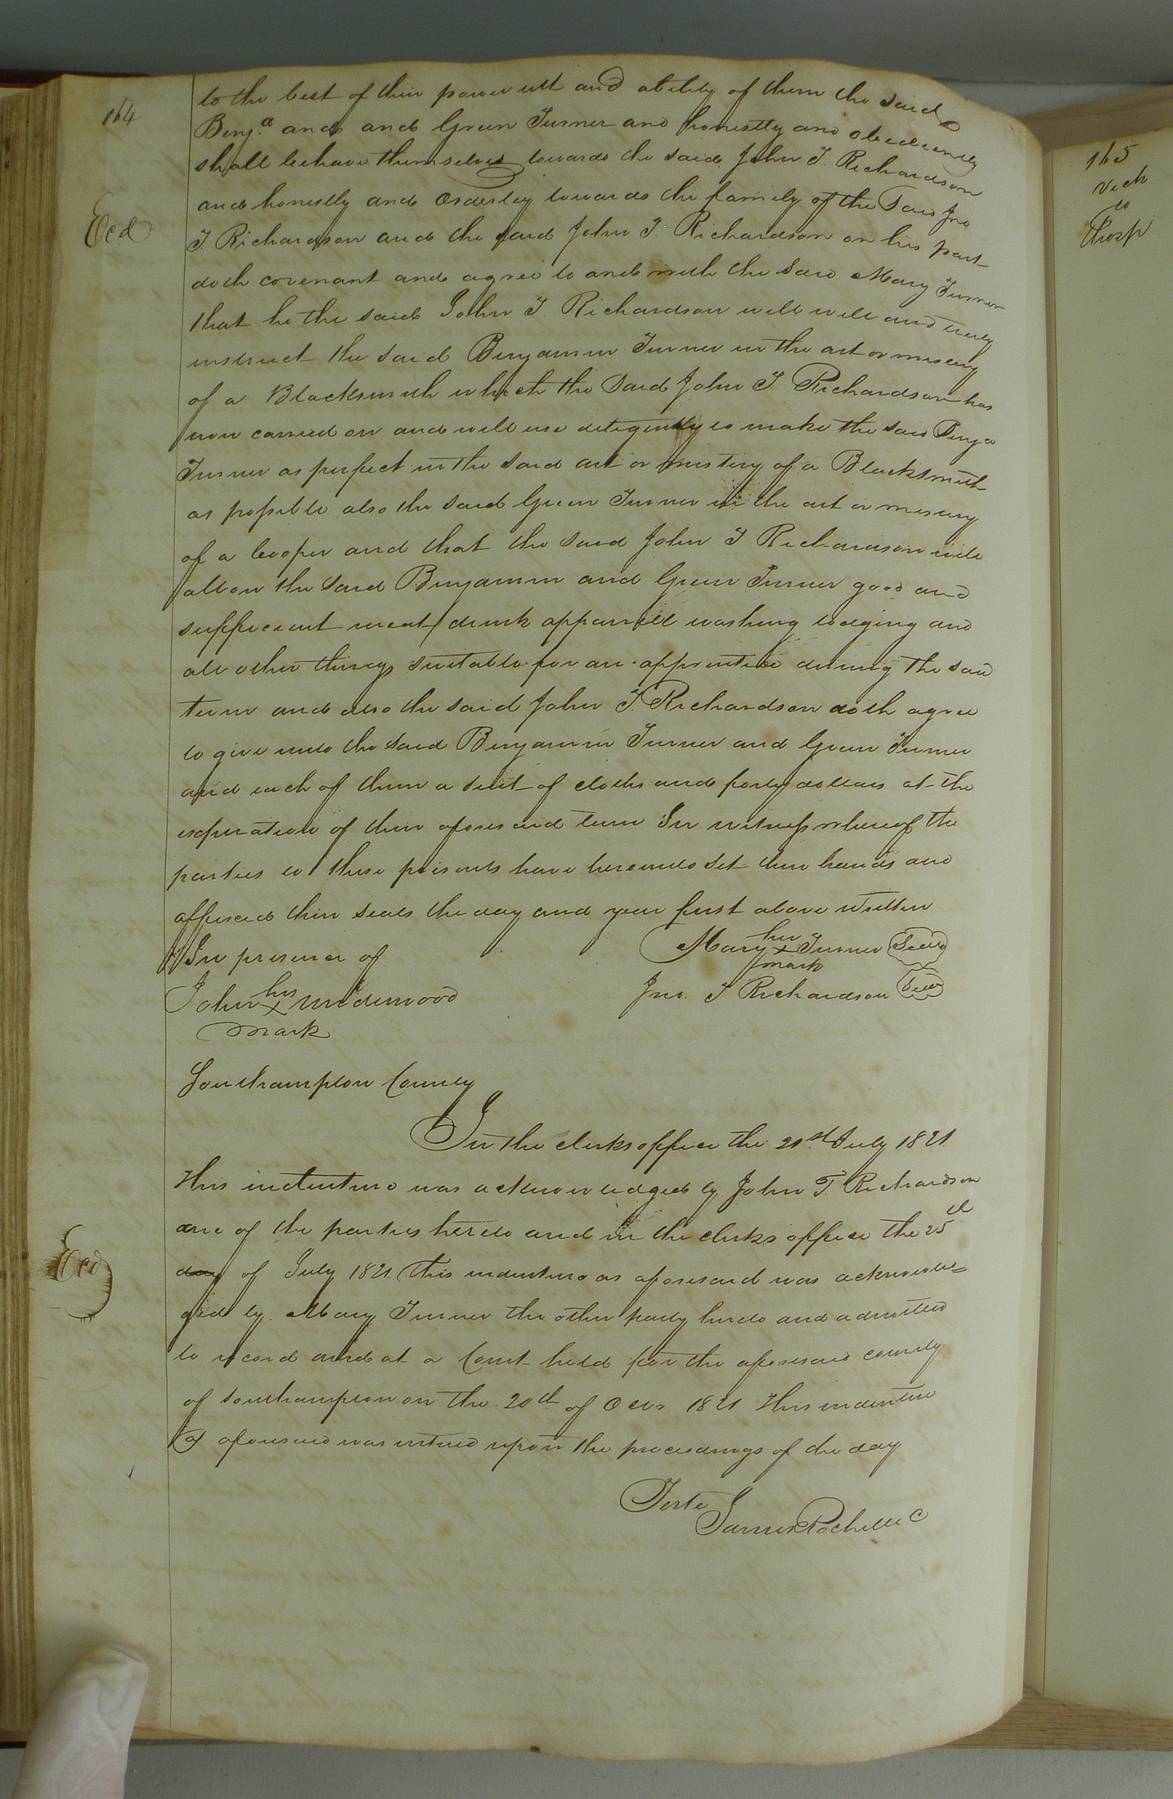 164
to the best of their power witt and ability of them the said
Benja. and and Green Turner and honestly and obediently
shall behave themselves towards the said John T Richardson
and honestly and Orderley towards the family of the Said Jno
Ecd
T Richardson and the said John T Richardson on his part
doth covenant and agree to and with the said Mary Turner
that he the said John T. Richardson will well and truly
instruct the said Benjamin Turner in the art or mistery
of a Blacksmith which the Said John T Richardson has
now carried on and will use diligently to make the said Benja
Turner as perfect in the said art or mistery of a Blacksmith
as possible also the said Green Turner in the art or mistery
of a Cooper and that the said John T Richardson will
allow the said Benjamin and Green Turner good and
sufficient meat drink apparell washing lodging and
all other things suitable for an apprentice during the said
term and also the said John T. Richardson doth agree
to give unto the said Benjamin Turner and Green Turner
and each of them a suit of cloths and forty dollars at the
expiration of their aforesaid term In witness whereof the
parties to these presents have hereunto set their hands and
affixed their seals the day and year first above written
In presence of
Mary her x mark Turner Seal
John his x mark
Jno. T Richardson Seal
Southampton County
In the clerks office the 21st July 1821
This indenture was acknowledged by John T. Richardson
one of the parties hereto and in the clerks office the 25th
Ecd
day of July 1821 This indenture as aforesaid was acknowle=
ged by Mary Turner the other party hereto and admitted
to record and at a Court held for the aforesaid county
of Southampton on the 20th of Octr. 1821 This indenture
as aforesaid was entered upon the proceedings of the day
Teste
James Rochelle C
165
to
Thorp